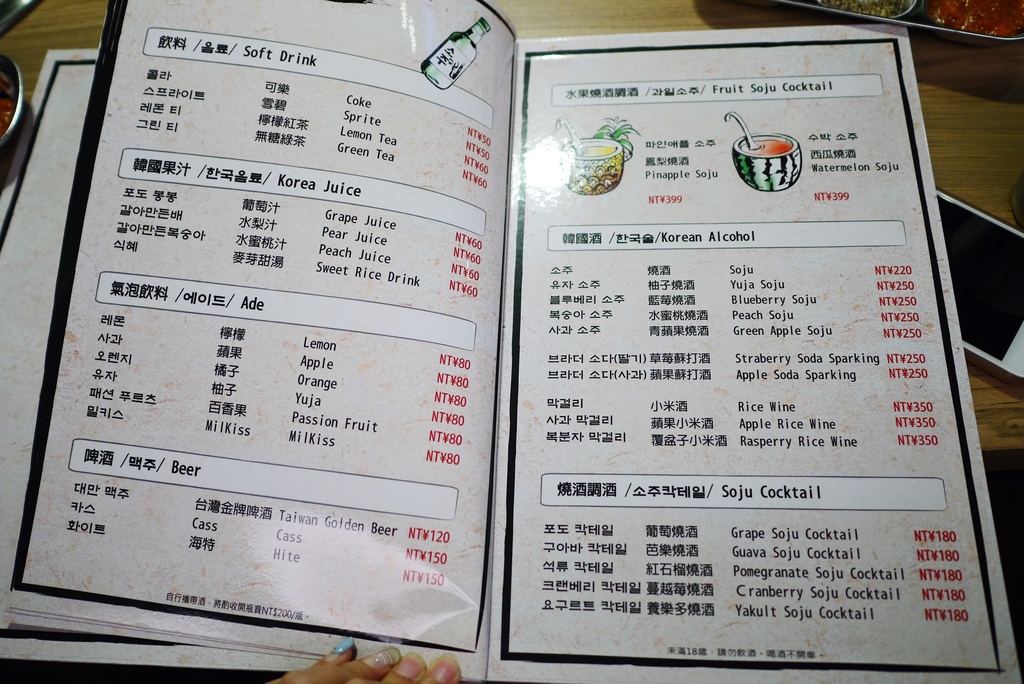 飲料 /음료/ Soft Drink
콜라 可樂 Coke NT¥50
스프라이트 雪碧 Sprite NT¥50
레몬 티 檸檬紅茶 Lemon Tea NT¥60
그린 티 無糖綠茶 Green Tea NT¥60
韓國果汁 /한국음료/ Korea Juice
포도 봉봉 葡萄汁 Grape Juice NT¥60
갈아만든배 水梨汁 Pear Juice NT¥60
갈아만든복숭아 水蜜桃汁 Peach Juice NT¥60
식혜 麥芽甜湯 Sweet Rice Drink NT¥60
氣泡飲料 /에이드/ Ade
레몬 檸檬 Lemon NT¥80
사과 蘋果 Apple NT¥80
오렌지 橘子 Orange NT¥80
유자 柚子 Yuja NT¥80
패션 푸르츠 百香果 Passion Fruit NT¥80
밀키스 MilKiss MilKiss NT¥80
啤酒 /맥주/ Beer
대만 맥주 台灣金牌啤酒 Taiwan Golden Beer NT¥120
카스 Cass Cass NT¥150
화이트 海特 Hite NT¥150
自行攜帶酒，將酌收開瓶費NT$200/瓶。
水果燒酒調酒 /과일소주/ Fruit Soju Cocktail
파인애플 소주
鳳梨燒酒
Pinapple Soju
NT¥399
수박 소주
西瓜燒酒
Watermelon Soju
NT¥399
韓國酒 /한국술/Korean Alcohol
소주 燒酒 Soju NT¥220
유자 소주 柚子燒酒 Yuja Soju NT¥250
블루베리 소주 藍莓燒酒 Blueberry Soju NT¥250
복숭아 소주 水蜜桃燒酒 Peach Soju NT¥250
사과 소주 青蘋果燒酒 Green Apple Soju NT¥250
브라더 소다(딸기) 草莓蘇打酒 Straberry Soda Sparking NT¥250
브라더 소다(사과) 蘋果蘇打酒 Apple Soda Sparking NT¥250
막걸리 小米酒 Rice Wine NT¥350
사과 막걸리 蘋果小米酒 Apple Rice Wine NT¥350
복분자 막걸리 覆盆子小米酒 Rasperry Rice Wine NT¥350
燒酒調酒 /소주칵테일/ Soju Cocktail
포도 칵테일 葡萄燒酒 Grape Soju Cocktail NT¥180
구아바 칵테일 芭樂燒酒 Guava Soju Cocktail NT¥180
석류 칵테일 紅石榴燒酒 Pomegranate Soju Cocktail NT¥180
크랜베리 칵테일 蔓越莓燒酒 Cranberry Soju Cocktail NT¥180
요구르트 칵테일 養樂多燒酒 Yakult Soju Cocktail NT¥180
未滿18歲，請勿飲酒。喝酒不開車。